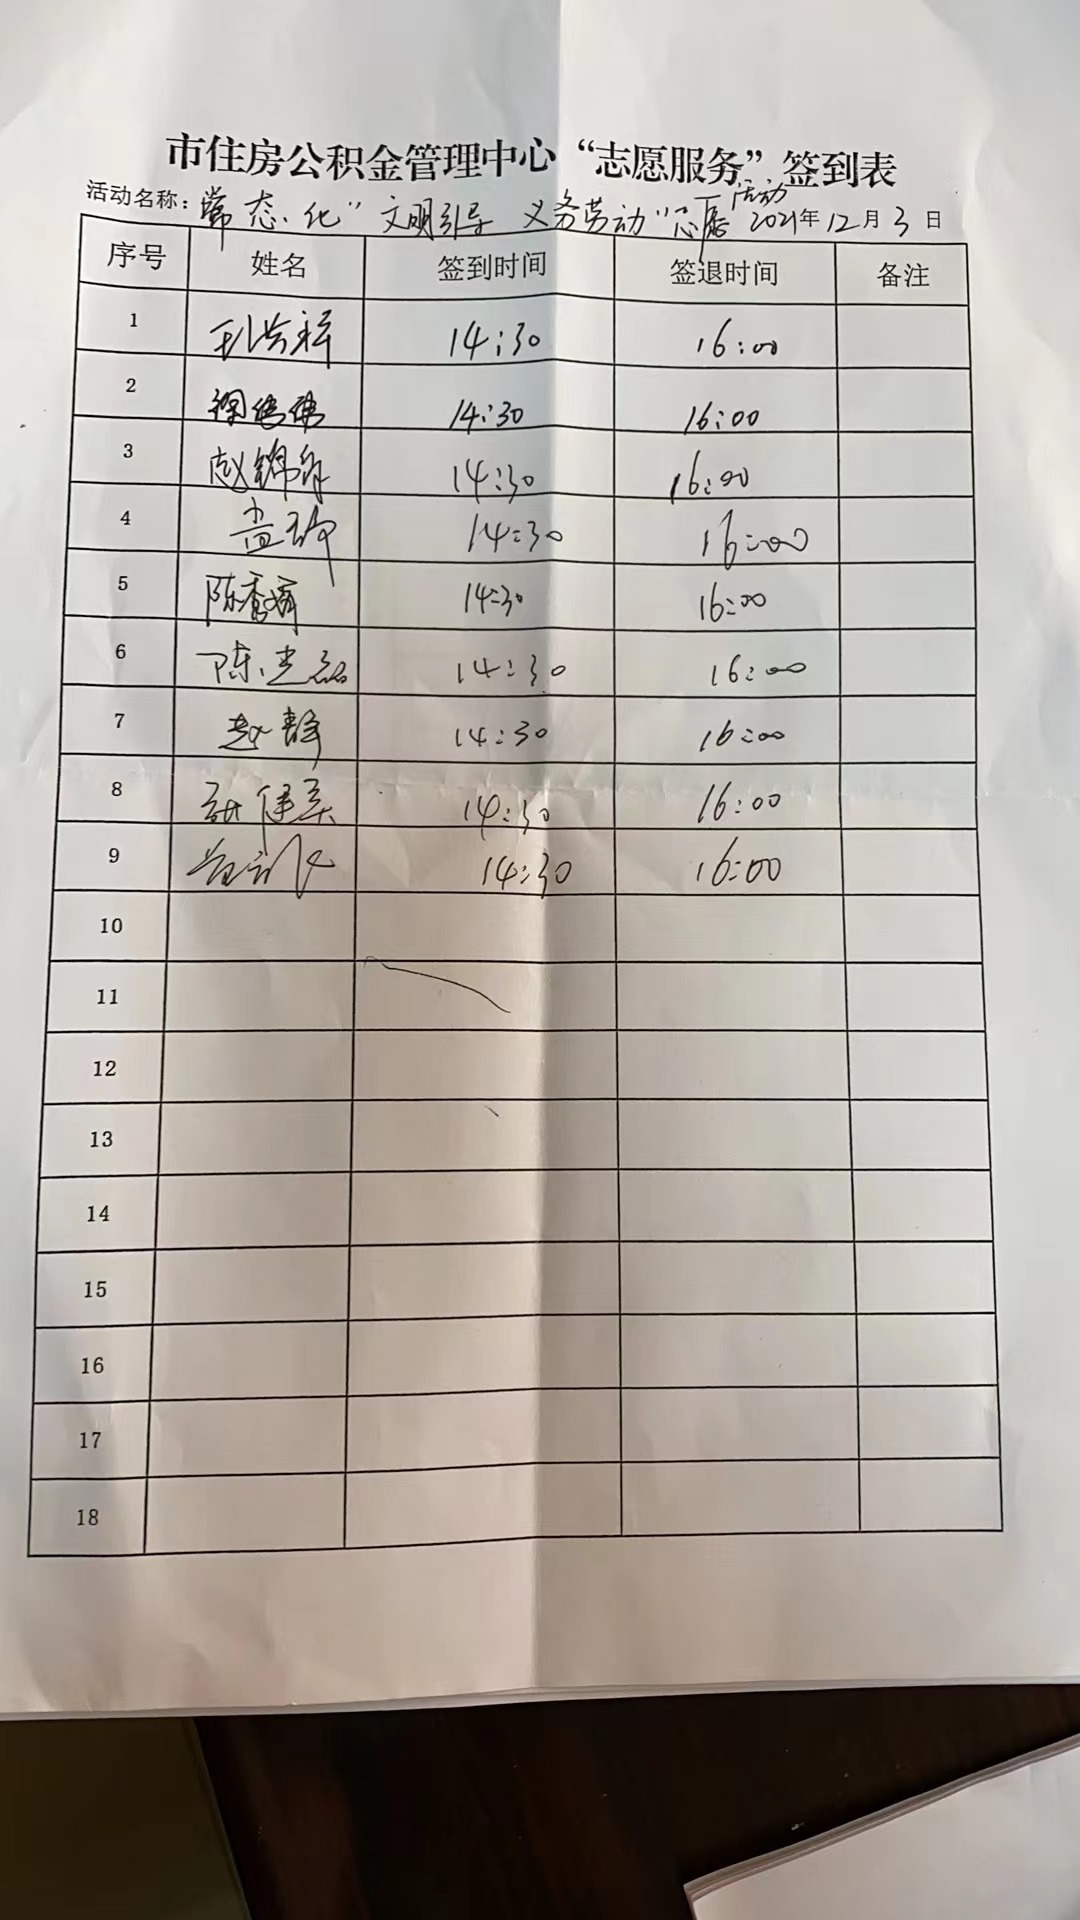 市住房公积金管理中心“志愿服务”签到表
活动名称：常态化“文明引导 义务劳动”志愿活动 2021年12月3日
序号 姓名 签到时间 签退时间 备注
1 14:30 16:00
2 14:30 16:00
3 赵锦 14:30 16:00
4 14:30 16:00
5 陈香 14:30 16:00
6 陈光磊 14:30 16:00
7 赵静 14:30 16:00
8 张健美 14:30 16:00
9 14:30 16:00
10
11
12
13
14
15
16
17
18